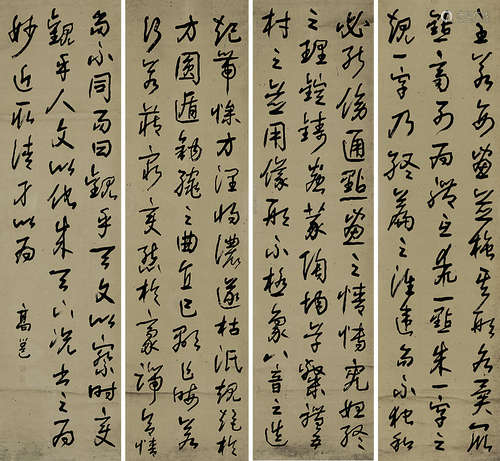 至若數畫並施其形各異眾
點齊列為體互乖一點成一字之
規一字乃終篇之准違而不和
必能傍通點畫之情博究始終
之理鎔鑄蟲篆陶均草隸體五
材之並用儀形不極象八音之迭
犯帶燥方潤將濃遂枯泯規矩於
方圓遁鉤繩之曲直乍顯乍晦若
行若藏窮變態於豪端合情
而不同而曰觀乎天文以察時變
觀乎人文以化成天下況書之為
妙近取諸以為
高邕